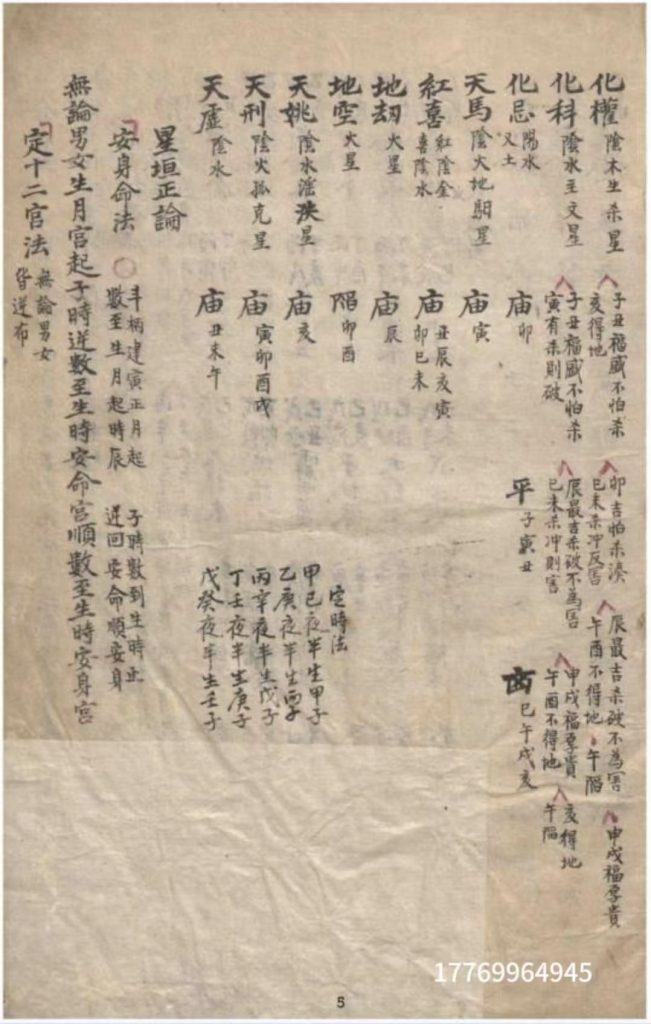 化權 陰木生杀星 子丑福盛不怕杀 亥得地 卯吉怕杀湊 巳未杀冲反害 辰最吉杀破不為害 午酉不得地、午陷 申戌福厚貴
化科 陰水主文星 子丑福盛不怕杀 寅有杀則破 辰最吉杀破不為害 巳未杀冲則害 申戌福厚貴 午酉不得地 亥得地 午陷
化忌 陽水又土 庙 卯 平 子寅丑 巳午戌亥
天馬 陰火地駟星 庙 寅
紅喜 紅陰金 喜陰水 庙 丑辰亥寅 卯巳未
地刼 火星 庙 辰
地空 火星 陷 卯酉
天姚 陰水淫泆星 庙 亥
天刑 陰火孤克星 庙 寅卯酉戌
天虛 陰水 庙 丑未午
定時法
甲己夜半生甲子
乙庚夜半生丙子
丙辛夜半生戊子
丁壬夜半生庚子
戊癸夜半生壬子
星垣正論
安身命法 斗柄建寅正月起 子時數到生時止
數至生月起時辰 逆回安命順安身
無論男女生月宮起子時逆數至生時安命宮順數至生時安身宮
定十二宮法 無論男女皆逆布
17769964945
5